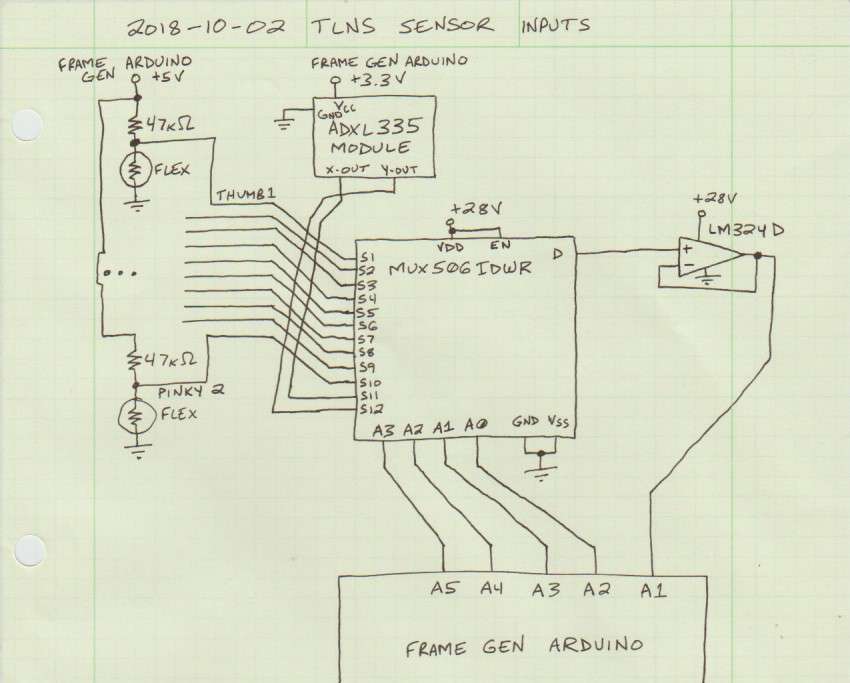 2018-10-02 TLNS SENSOR INPUTS
FRAME ARDUINO
GEN
+5V
47KΩ
FLEX
THUMB1
...
47KΩ
PINKY 2
FLEX
FRAME GEN ARDUINO
+3.3V
VCC
GND
ADXL335
MODULE
X-OUT Y-OUT
+28V
VDD EN
D
MUX506IDWR
S1
S2
S3
S4
S5
S6
S7
S8
S9
S10
S11
S12
A3 A2 A1 A0
GND VSS
+28V
LM324D
+
-
A5 A4 A3 A2 A1
FRAME GEN ARDUINO